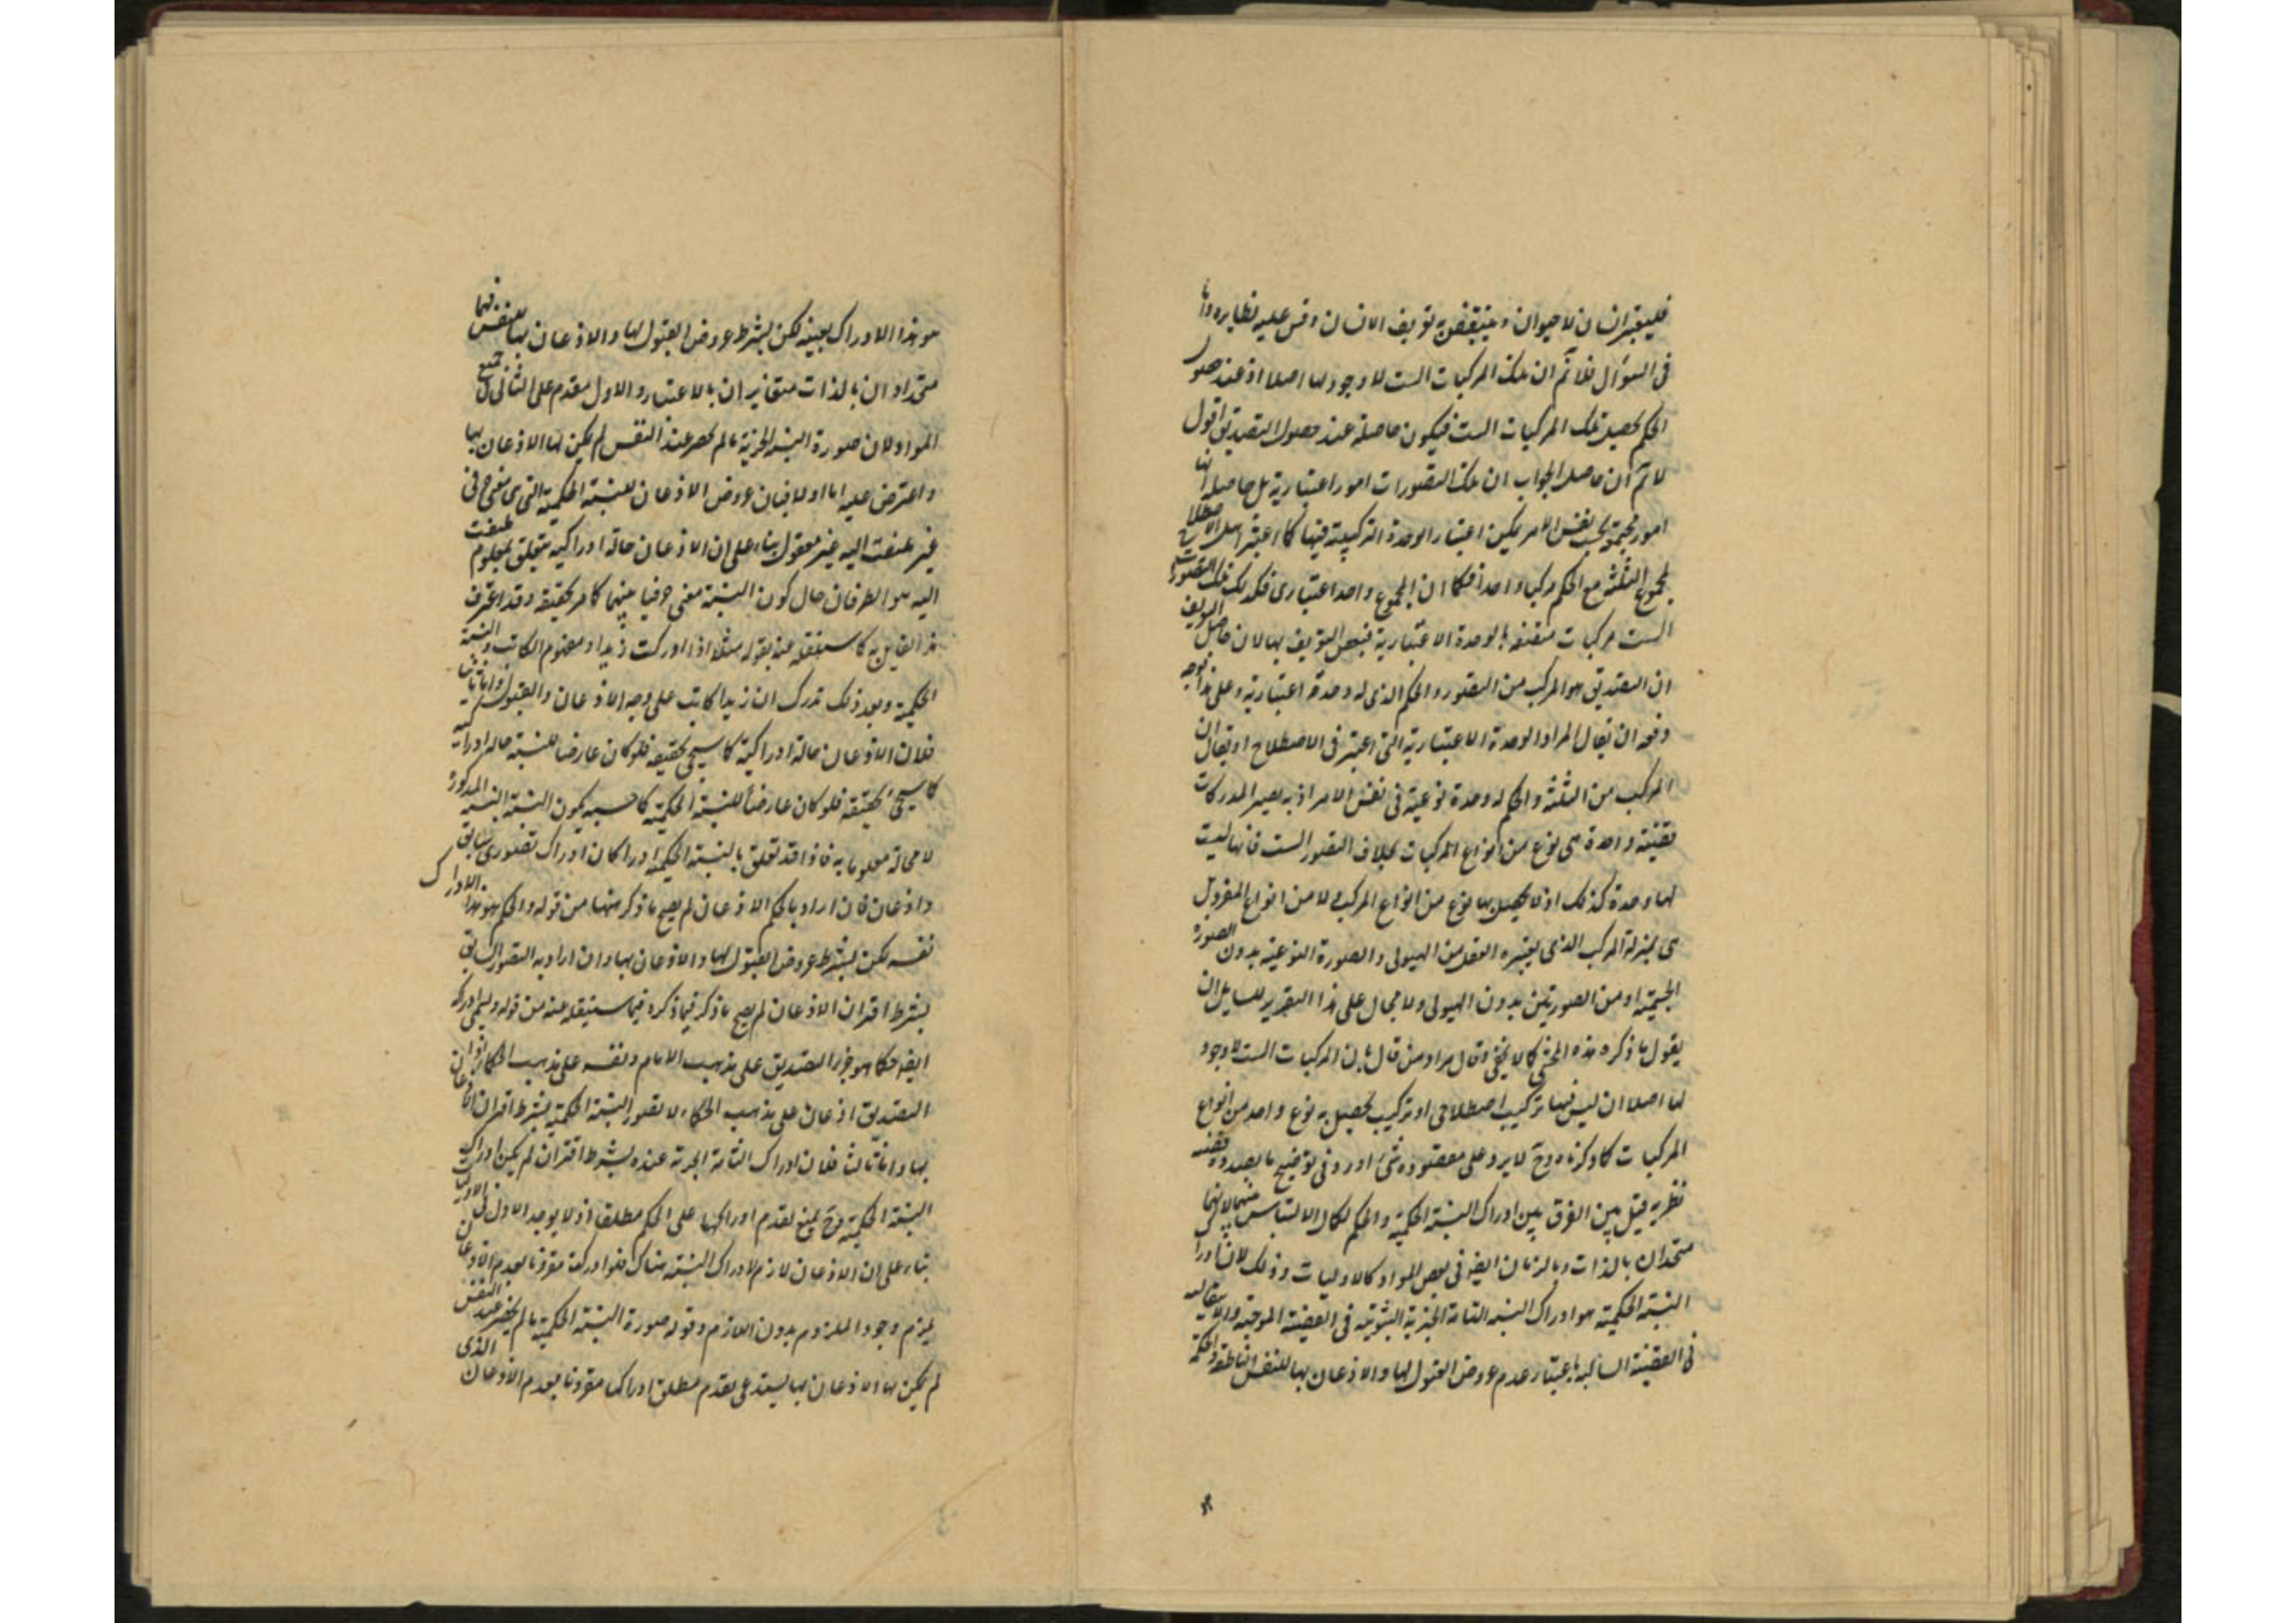 فليعتبر انسان لا حيوان وينتقض به تعريف الانسان وقس عليه نظايره واما
فى السؤال فلانم ان تلك المركبات الست لا وجود لها اصلا اذ عند حصول
الحكم يحصل تلك المركبات الست فيكون حاصلة عند حصول التصديق اقول
لانم ان حاصل الجواب ان تلك التصورات امور اعتبارية بل حاصله انها
امور مجتمعة بحسب نفس الامر يمكن اعتبار الوحدة التركيبية فيها كما اعتبر اهل الاصطلاح
لمجموع الثلثة مع الحكم مركبا واحدا فكما ان المجموع واحد اعتبارى فكذلك تلك التصورات
الست مركبات متصفة بالوحدة الاعتبارية فينتقض التعريف بها لان حاصل التعريف
ان التصديق هو المركب من التصور والحكم الذى له وحدة اعتبارية وعلى هذا توجه
دفعه ان يقال المراد الوحدة الاعتبارية التى اعتبر فى الاصطلاح او يقال ان
المركب من الثلثة والحكم له وحدة نوعية فى نفس الامر اذ به يصير المدركات
قضية واحدة هى نوع من انواع المركبات بخلاف التصور الست فانها ليست
لها وحدة كذلك اذ لا يحصل بها نوع من انواع المركب لا من انواع المفرد بل
هى بمنزلة المركب الذى يعتبره العقل من الهيولى والصورة النوعية بدون الصورة
الجسمية او من الصورتين بدون الهيولى ولا مجال على هذا التقرير للسايل ان
يقول ما ذكره هذه المحشى كما لا يخفى وقال مراد من قال ان المركبات الست لا وجود
لها اصلا ان ليس فيها تركيب اصطلاحى او تركيب يحصل به نوع واحد من انواع
المركبات كما ذكرناه وح لا يرد على مقصوده شئ اورد وفى توضيح ما بصدده قضية
نظرية قيل بين الفرق بين ادراك النسبة الحكمية والحكم لكمال الالتباس بينهما لانهما
متحدان بالذات وبالزمان ايضا فى بعض المواد كالاوليات وذلك لان ادراك
النسبة الحكمية هو ادراك النسبة التامة الخبرية الثبوتية فى القضية الموجبة والسلبية
فى القضية السالبة باعتبار عدم عروض القبول لها والاذعان بها للنفس الناطقة والحكم
هو هذا الادراك بعينه لكن بشرط عروض القبول لها والاذعان بها للنفس فهما
متحدان بالذات متغايران بالاعتبار والاول مقدم على الثانى فى جميع
المواد لان صورة النسبة الخبرية ما لم يحصر عند النفس لم يكن لها الاذعان بها
واعترض عليه اما اولا فبان عروض الاذعان للنسبة الحكمية التى هى معنى حرفى
غير ملتفت اليه غير معقول بناء على ان الاذعان حالة ادراكية يتعلق بمعلوم ملتفت
اليه هو الطرفان حال كون النسبة معنى حرفيا بينهما كما مر تحقيقه وقد اعترف
هذا القايل به كما سننقله عنه بقوله مثلا اذا ادركت زيدا ومفهوم الكاتب والنسبة
الحكمية وبعد ذلك تدرك ان زيدا كاتب على وجه الاذعان والقبول واما ثانيا
فلان الاذعان حالة ادراكية كما سيجئ تحقيقه فلو كان عارضا للنسبة حالة ادراكية
كما سيجئ تحقيقه فلو كان عارضا للنسبة الحكمية كما حسبه يكون النسبة المذكورة
لا محالة معلوما به فاذا قد تعلق بالنسبة الحكمية ادراكان ادراك تصورى سابق
واذعان فان اراد بالحكم الاذعان لم يصح ما ذكر ههنا من قوله والحكم هو هذا الادراك
نفسه لكن بشرط عروض القبول لها والاذعان بها وان اراد به التصور السابق
بشرط اقتران الاذعان لم يصح ما ذكر فيما ذكره فيما سننقله عنه من قوله ويسمى ادراك
ايضا حكما هو جزء التصديق على مذهب الامام ونفسه على مذهب الحكماء
التصديق اذعان على مذهب الحكماء لا تصور النسبة الحكمية بشرط اقتران الاذعان
بها واما ثالثا فلان ادراك التامة الخبرية عنده بشرط اقتران لم يكن ادراك
النسبة الحكمية وح يمنع تقدم ادراكها على الحكم مطلقا اذ لا يوجد الاول فى الاوليات
بناء على ان الاذعان لازم لادراك النسبة هناك فلو ادركت مقرونا بعدم الاذعان
يلزم وجود الملزوم بدون اللازم وقوله صورة النسبة الحكمية ما لم يحضر عند النفس
لم يكن لها الاذعان بها يستدعى تقدم مطلق ادراك مقرونا بعدم الاذعان الذى